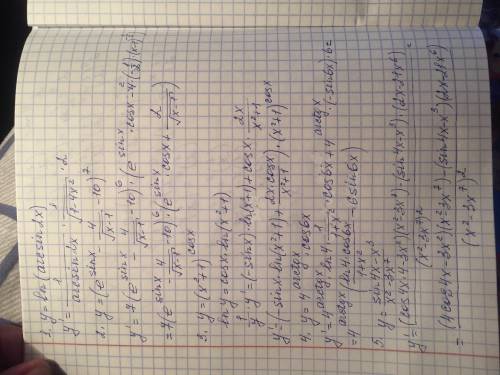 1. y = ln(arcsin 2x)
y' = 1/(arcsin 2x) · 1/√(1-4x²) · 2
2. y = (e^(sin x) - 4/√(x-1) - 10)^7
y' = 7(e^(sin x) - 4/√(x-1) - 10)^6 · (e^(sin x) · cos x - 4·(-1/2)·(x-1)
= 7(e^(sin x) - 4/√(x-1) - 10)^6 · (e^(sin x) · cos x + 2/√(x-1)
3. y = (x²+1)^(cos x)
ln y = cos x · ln(x²+1)
1/y · y' = (-sin x) · ln(x²+1) + cos x · 2x/(x²+1)
y' = (-sin x · ln(x²+1) + 2x cos x/(x²+1)) · (x²+1)^(cos x)
4. y = 4^(arctg x) · cos 6x
y' = 4^(arctg x) · ln 4 · 1/(1+x²) · cos 6x + 4^(arctg x) · (-sin 6x) · 6 =
= 4^(arctg x) (ln 4 · cos 6x/(1+x²) - 6 sin 6x)
5. y = (sin 4x - x³)/(x² - 3x⁷)
y' = ((cos 4x · 4 - 3x²)(x² - 3x⁷) - (sin 4x - x³) · (2x - 21x⁶))/(x² - 3x⁷)² =
= ((4 cos 4x - 3x²)(x² - 3x⁷) - (sin 4x - x³)(2x - 21x⁶))/(x² - 3x⁷)²